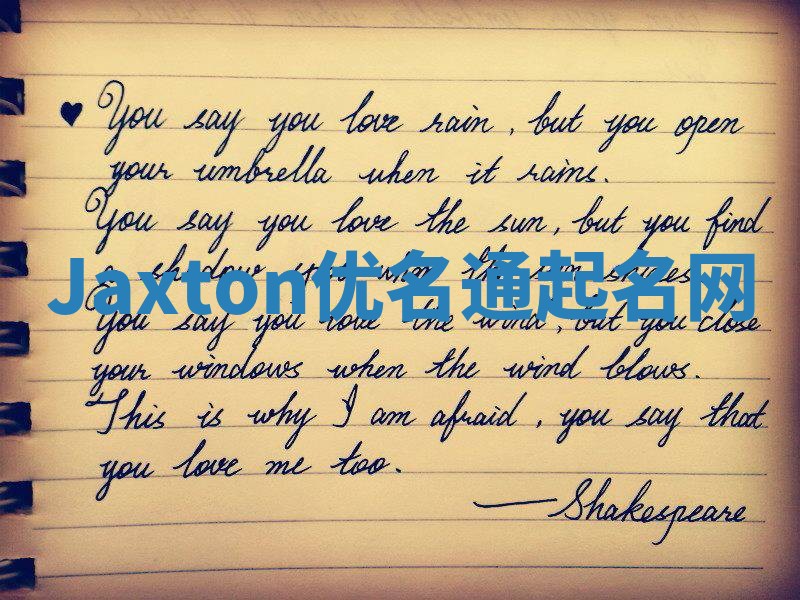 ♥ You say you love rain, but you open
your umbrella when it rains.
You say you love the sun, but you find
a shadow spot when the sun shines.
Jaxton优名通起名网
You say you love the wind, but you close
your windows when the wind blows.
This is why I am afraid, you say that
you love me too.
—Shakespeare